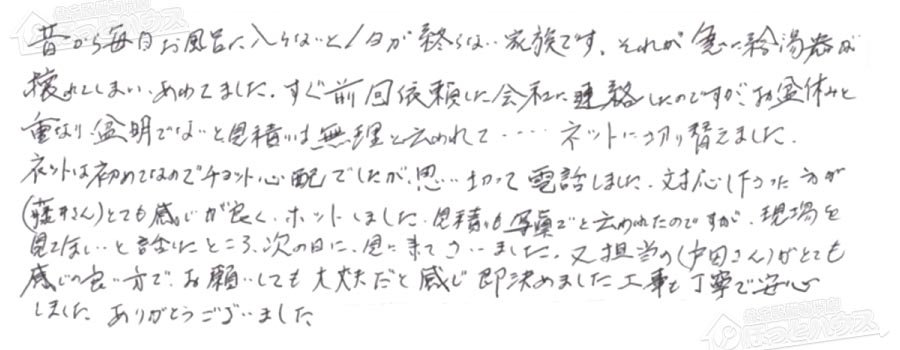 昔から毎日お風呂に入らないと1日が終らない家族です。それが急に給湯器が
壊れてしまい、あわてました。すぐ前回依頼した会社に連絡したのですが、お盆休みと
重なり、盆明でないと見積りは無理と云われて・・・・ ネットに切り替えました。
ネットは初めてなのでチョット心配でしたが、思い切って電話しました。対応し下さった方が
(藤井さん)とても感じが良く、ホットしました。見積も写真でと云われたのですが、現場を
見てほしいと話したところ、次の日に、見に来て下さいました。又担当の(戸田さん)がとても
感じの良い方で、お願いしても大丈夫だと感じ即決めました。工事も丁寧で安心
しました。ありがとうございました
給湯器専門店
ほっとハウス